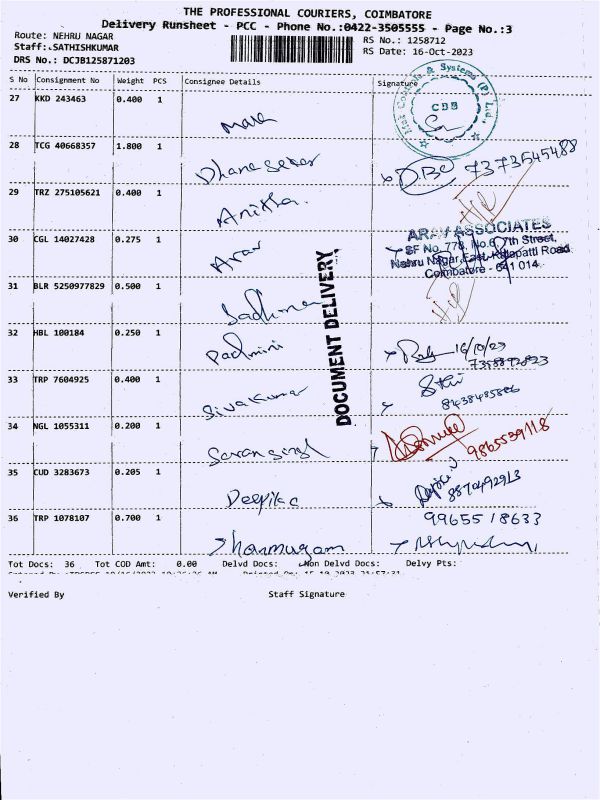 THE PROFESSIONAL COURIERS, COIMBATORE
Delivery Runsheet - PCC - Phone No.:0422-3505555 - Page No.:3
Route: NEHRU NAGAR
RS No.: 1258712
Staff: SATHISHKUMAR
RS Date: 16-Oct-2023
DRS No.: DCJB125871203
S No Consignment No Weight PCS Consignee Details Signature
27 KKD 243463 0.400 1
CBB
28 TCG 40668357 1.800 1 Dhanasekar 7373545488
29 TRZ 275105621 0.400 1 Anitha.
ARAV ASSOCIATES
SF No. 778, No.6, 7th Street,
Nehru Nagar East, Kalapatti Road
Coimbatore - 641 014.
30 CGL 14027428 0.275 1 Arav
31 BLR 5250977829 0.500 1 Sadhana
32 HBL 100184 0.250 1 Padmini 16/10/23
33 TRP 7604925 0.400 1 Sivakumar
8438485886
34 NGL 1055311 0.200 1 Saransingh 9865539118
35 CUD 3283673 0.205 1 Deepika 8870492913
36 TRP 1078107 0.700 1 Shanmugam 9965518633
DOCUMENT DELIVERY.
Tot Docs: 36 Tot COD Amt: 0.00 Delvd Docs: Non Delvd Docs: Delvy Pts:
Verified By Staff Signature